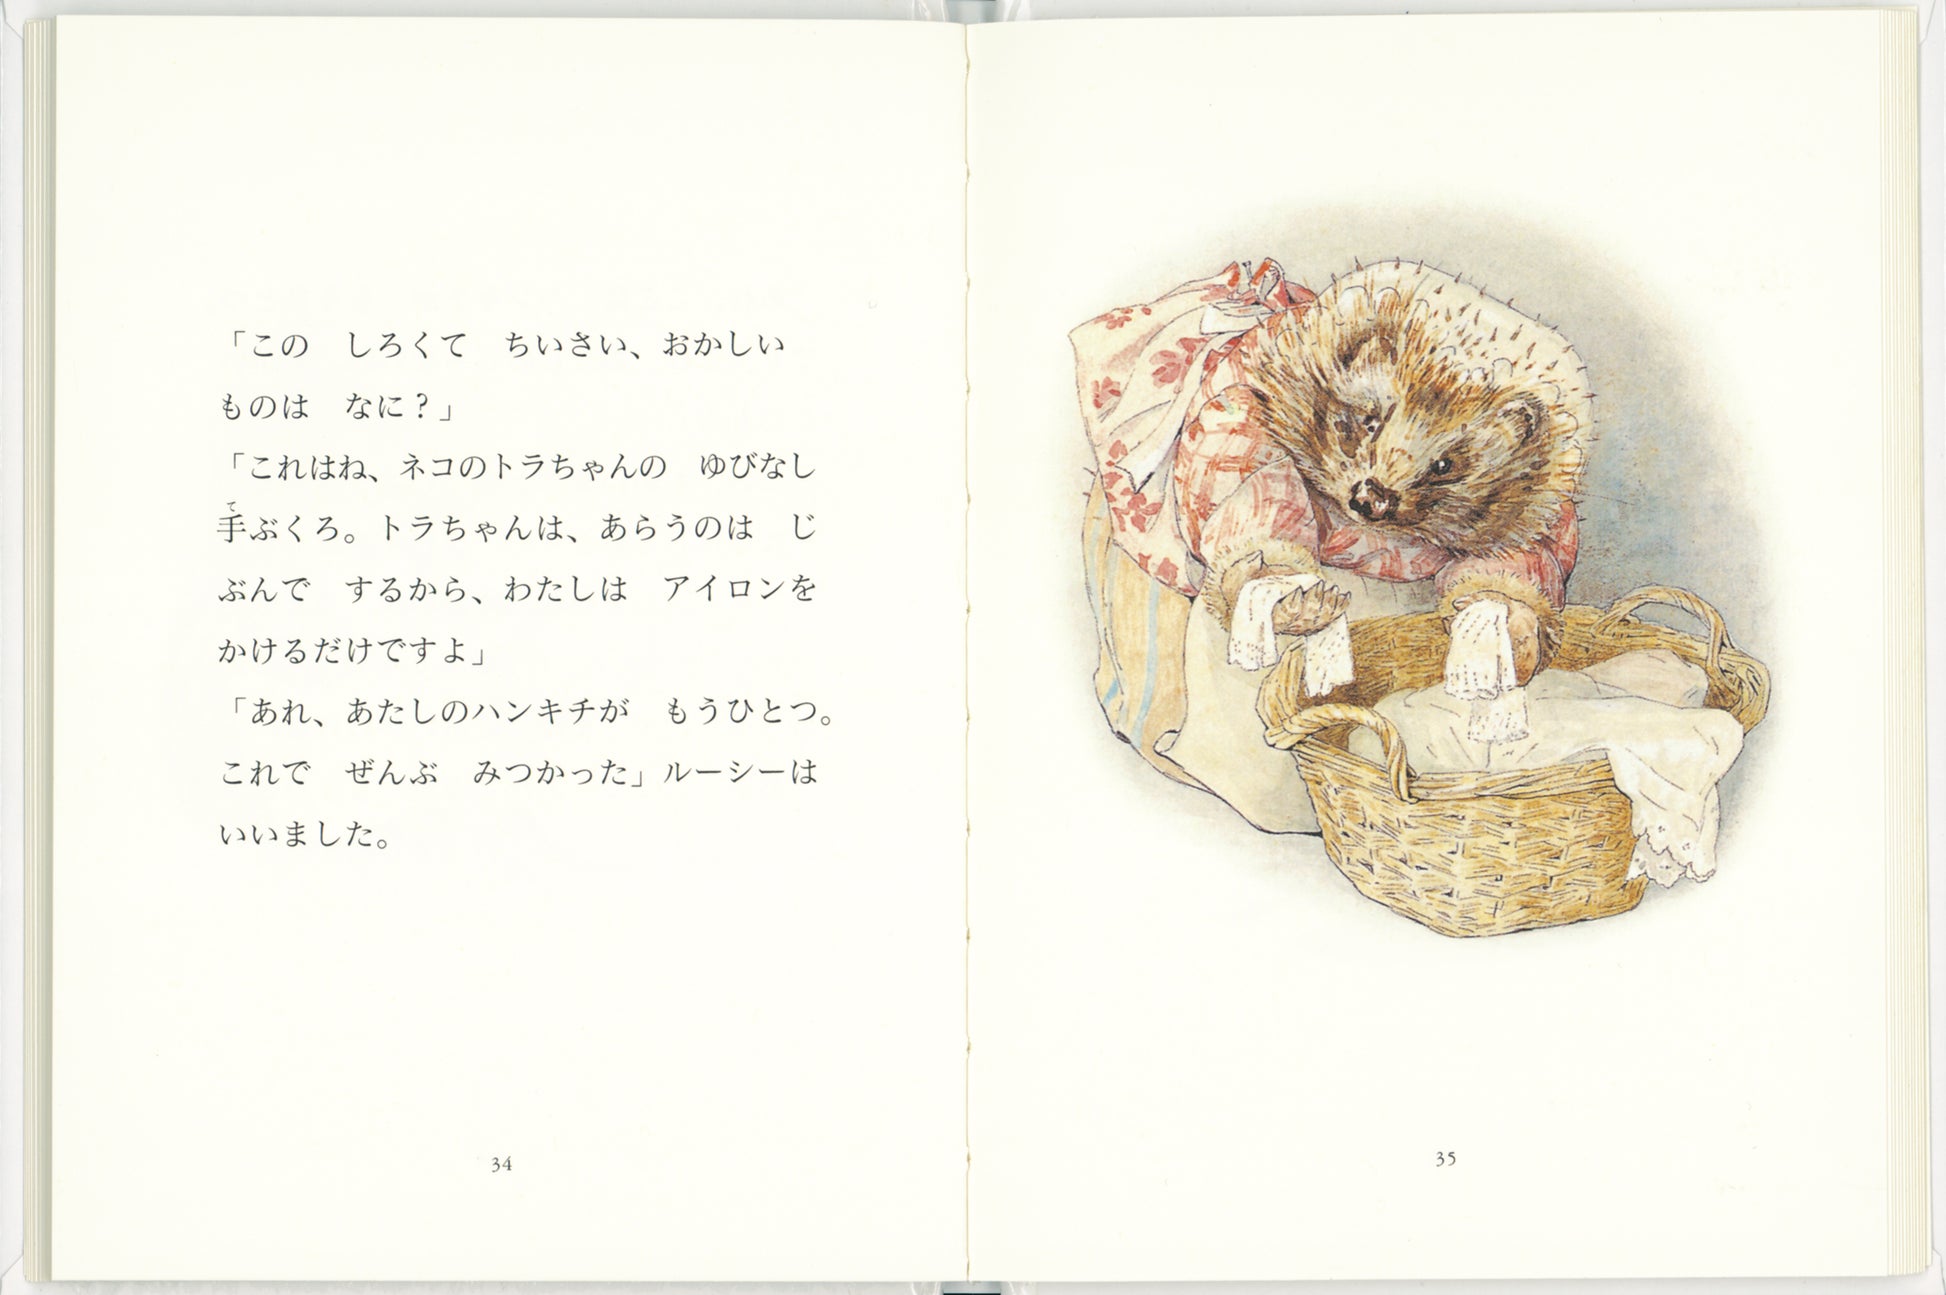 「この　しろくて　ちいさい、おかしい
ものは　なに？」
「これはね、ネコのトラちゃんの　ゆびなし
て
手ぶくろ。トラちゃんは、あらうのは　じ
ぶんで　するから、わたしは　アイロンを
かけるだけですよ」
「あれ、あたしのハンキチが　もうひとつ。
これで　ぜんぶ　みつかった」ルーシーは
いいました。
34
35